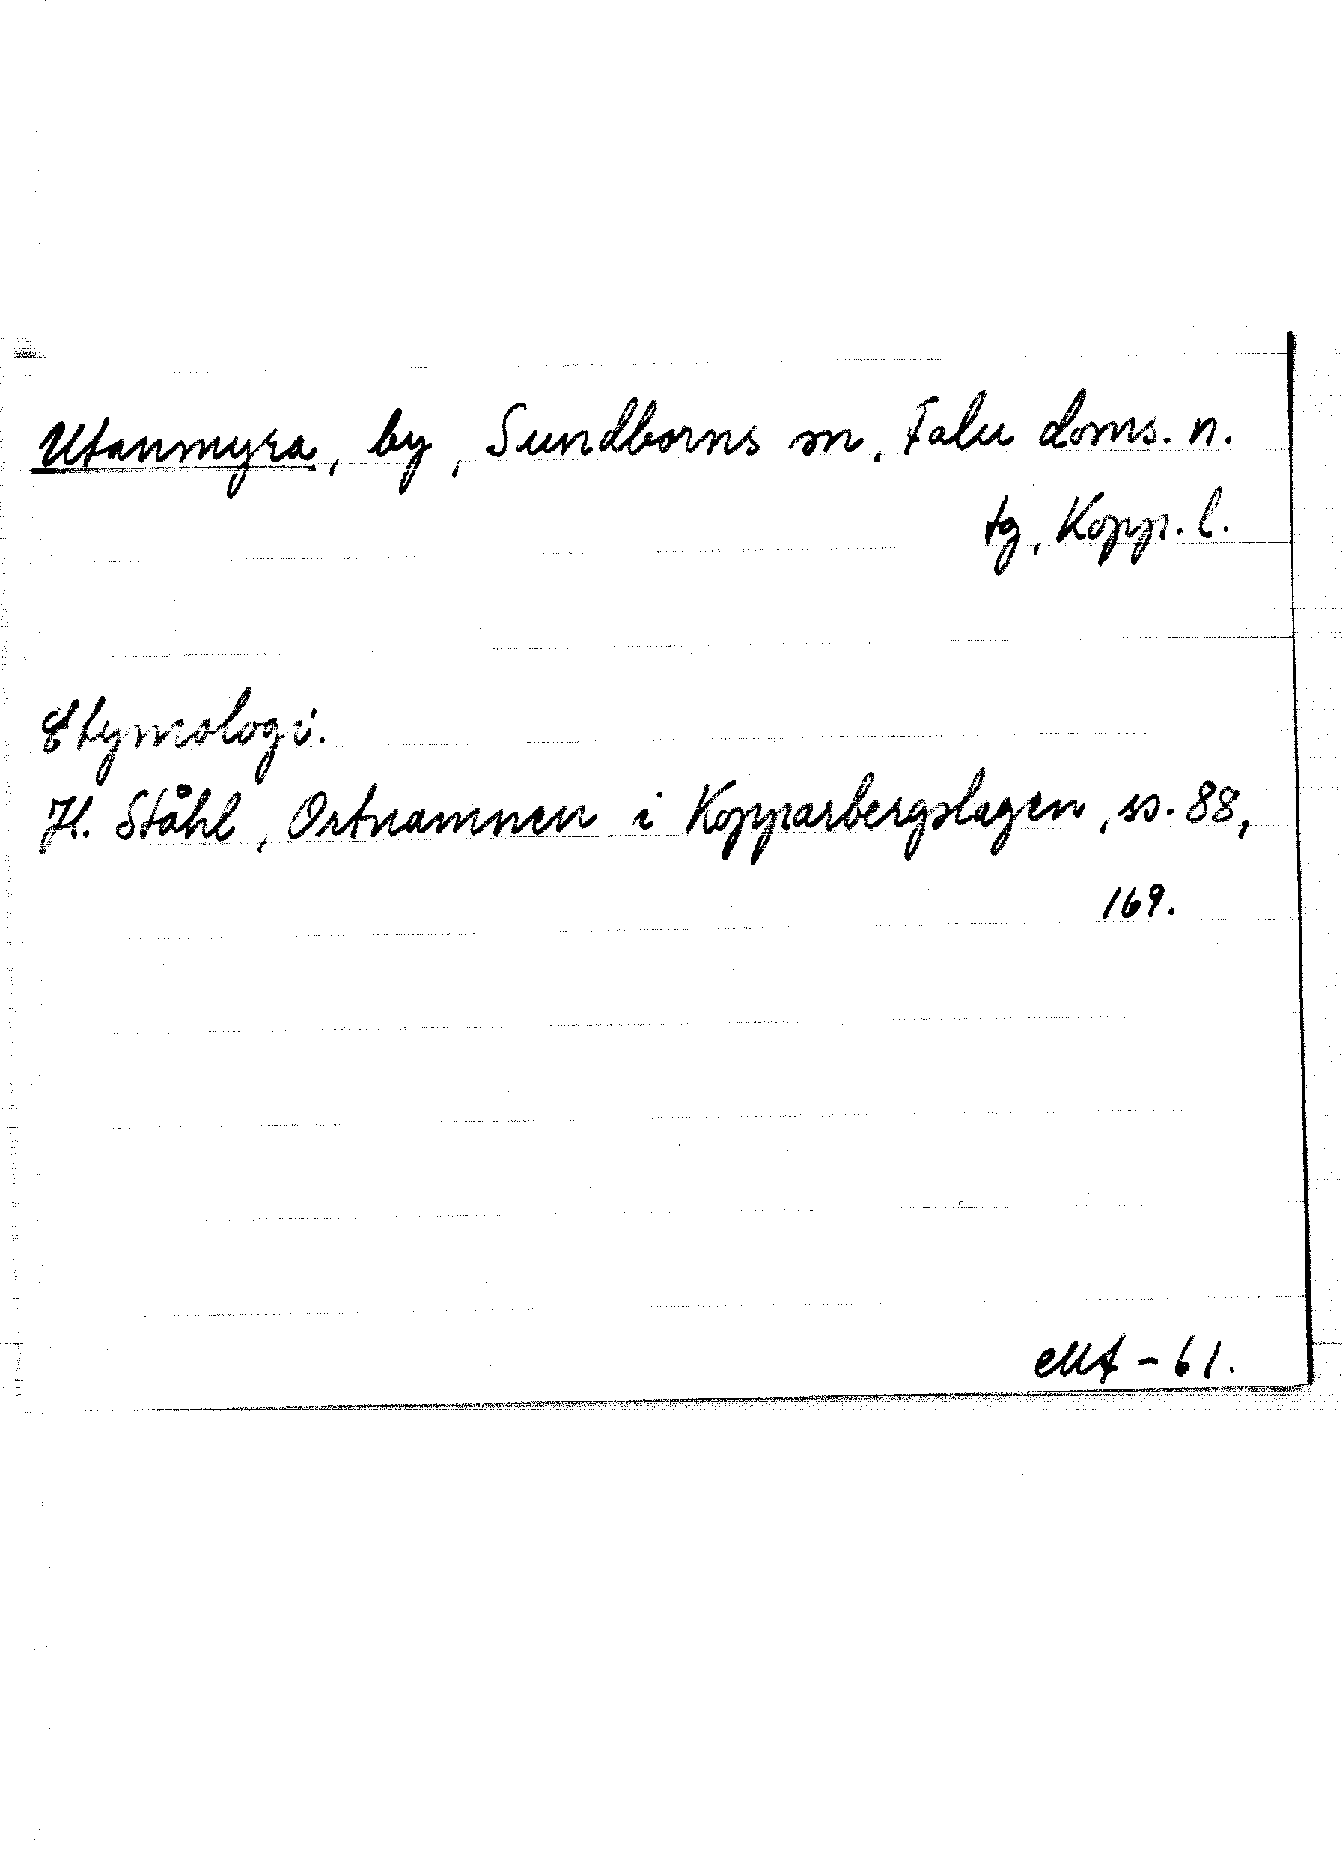 Utanmyra, by, Sundborns sn, Falu doms. n.
tg, Kopp. l.
Etymologi.
H. Ståhl, Ortnamnen i Kopparbergslagen, ss. 88,
169.
MA - 61.